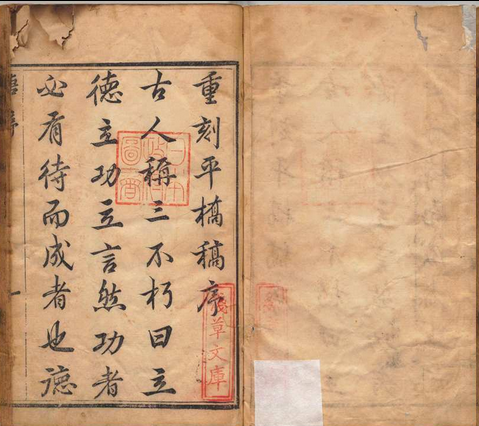 重刻平橋稿序
古人稱三不朽曰立
德立功立言然功者
必有待而成者也德
日本
政府
圖書
淺草文庫